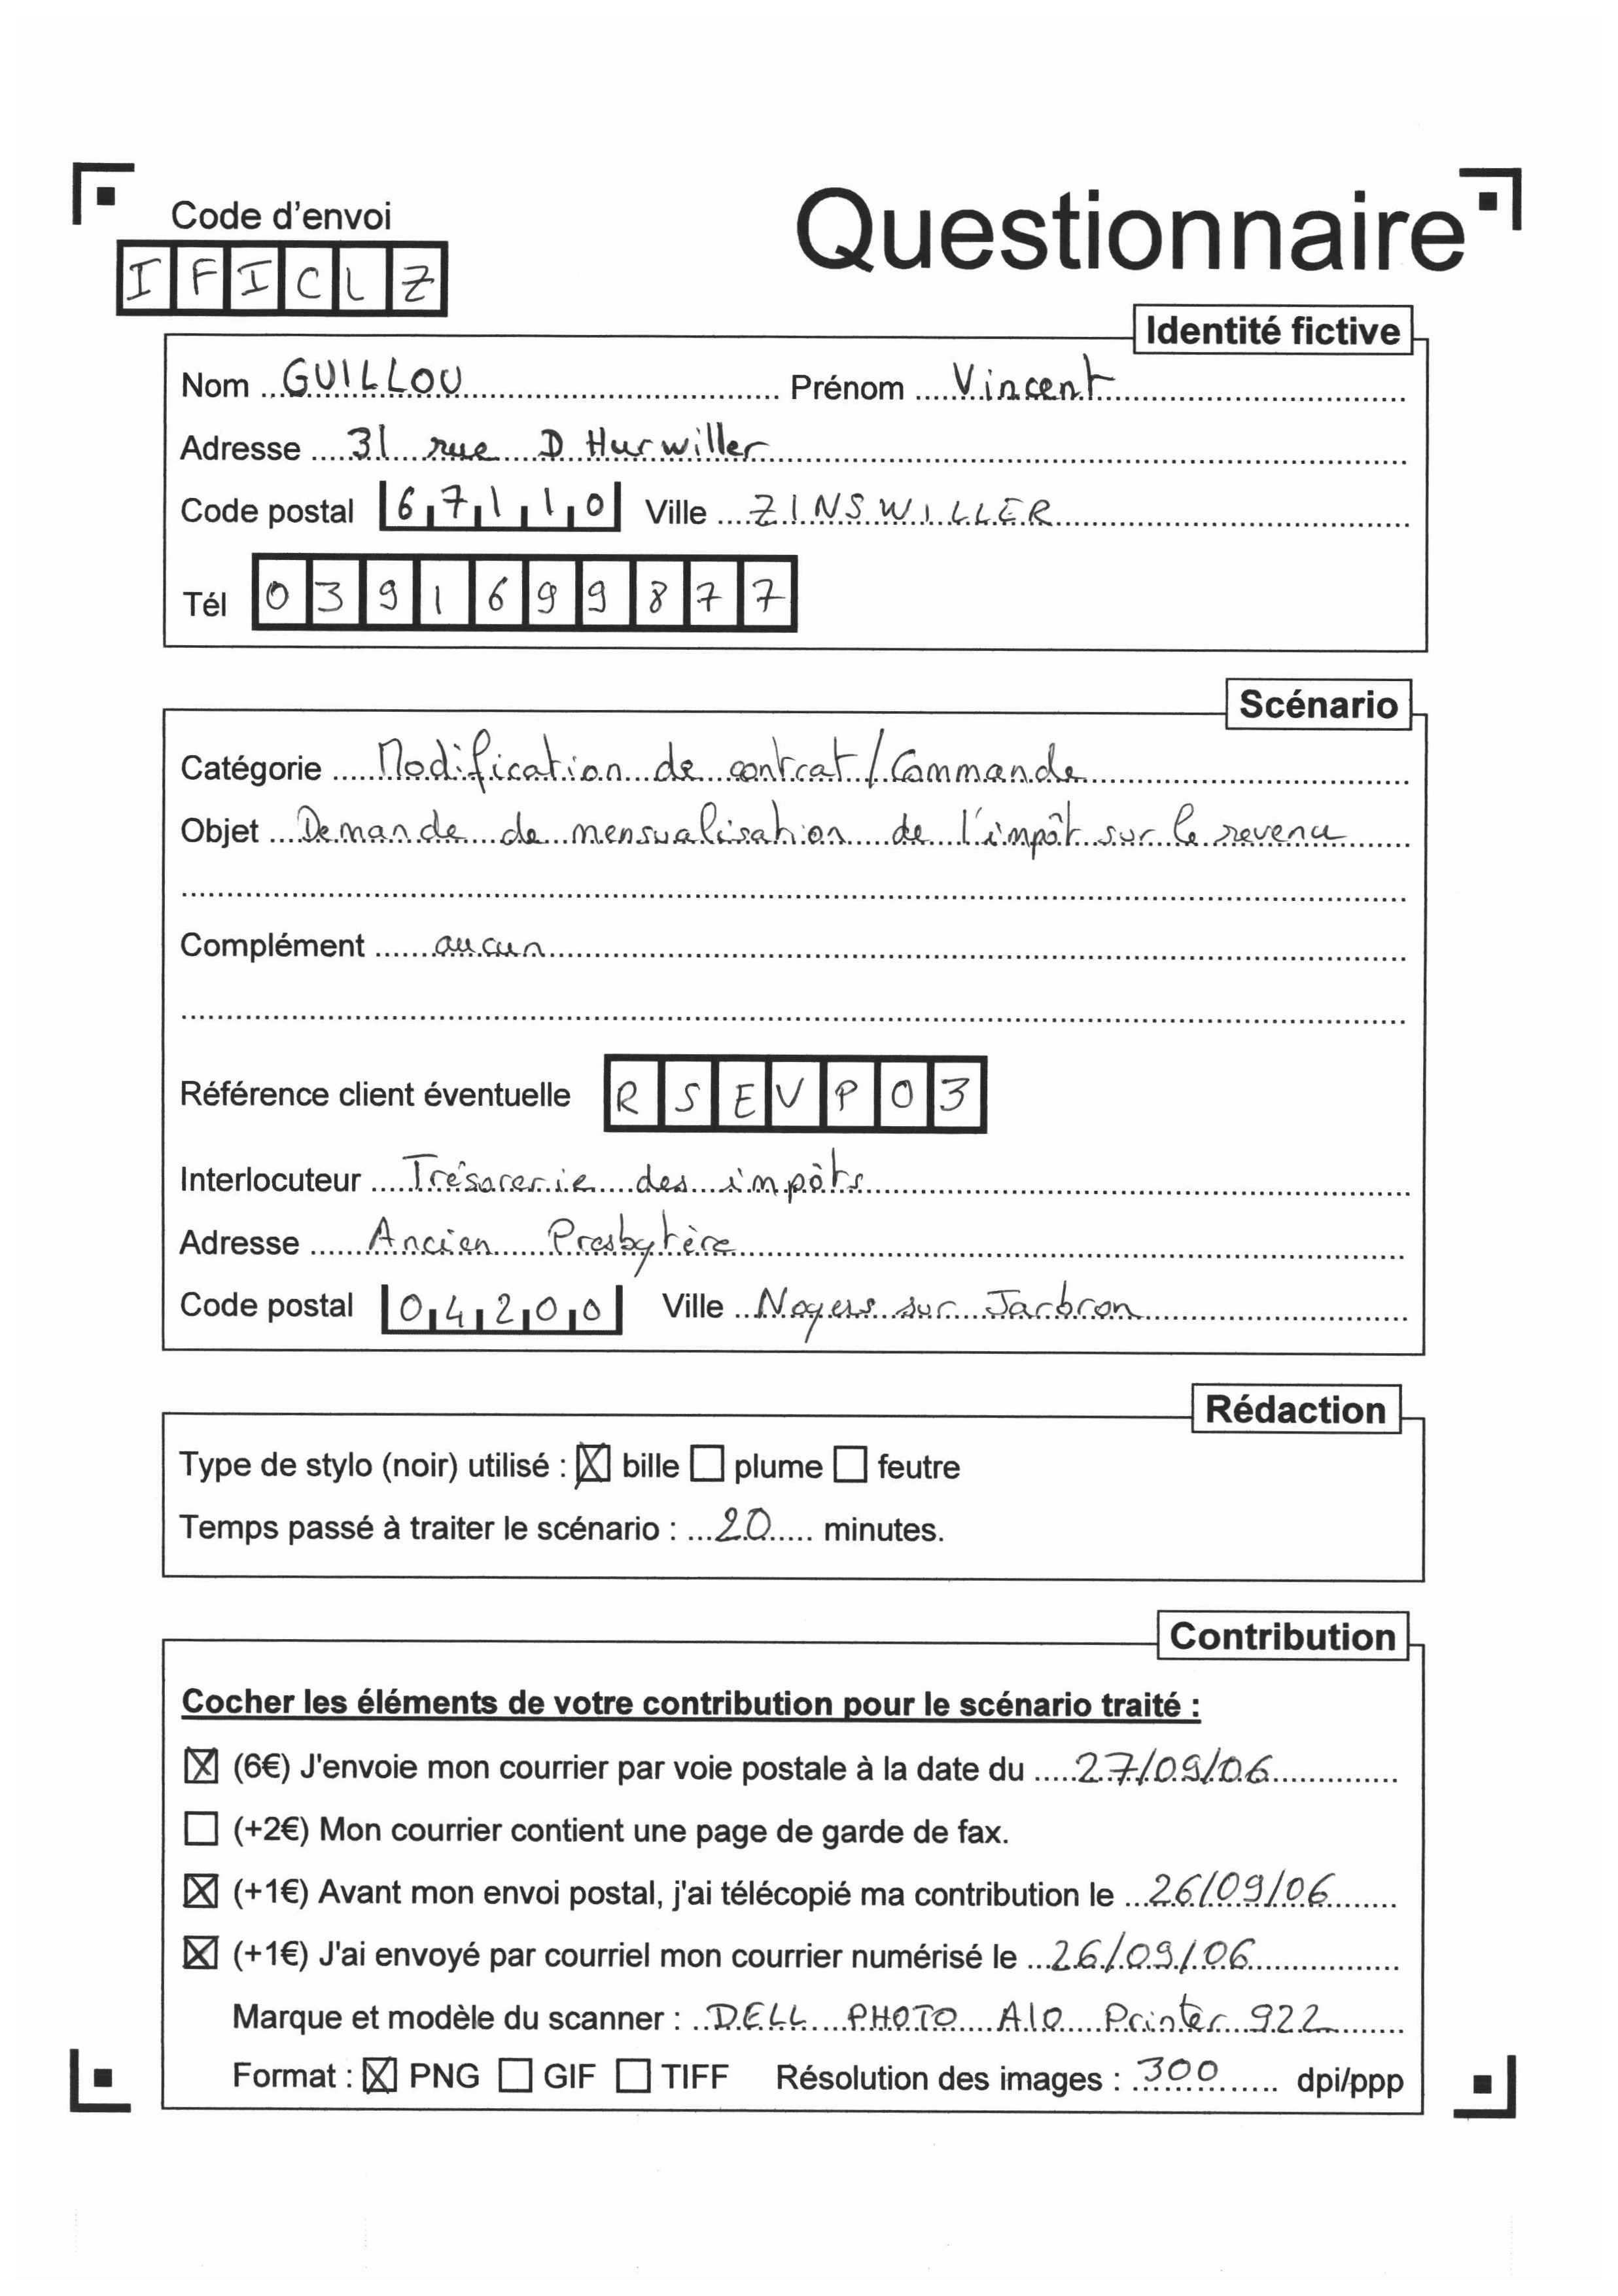 Code d'envoi
Questionnaire
IFICLZ
Identité fictive
Nom GUILLOU Prénom Vincent
Adresse 31 rue D Hurwiller
Code postal 67110 Ville ZINSWILLER
Tél 0391699877
Scénario
Catégorie Modification de contrat/Commande
Objet Demande de mensualisation de l'impôt sur le revenu
Complément aucun
Référence client éventuelle RSEVP03
Interlocuteur Trésorerie des impôts
Adresse Ancien Presbytère
Code postal 04200 Ville Noyers sur Jarbron
Rédaction
Type de stylo (noir) utilisé : ☒ bille ☐ plume ☐ feutre
Temps passé à traiter le scénario : 20 minutes.
Contribution
Cocher les éléments de votre contribution pour le scénario traité :
☒ (6€) J'envoie mon courrier par voie postale à la date du 27/09/06
☐ (+2€) Mon courrier contient une page de garde de fax.
☒ (+1€) Avant mon envoi postal, j'ai télécopié ma contribution le 26/09/06
☒ (+1€) J'ai envoyé par courriel mon courrier numérisé le 26/09/06
Marque et modèle du scanner : DELL PHOTO AIO Printer 922
Format : ☒ PNG ☐ GIF ☐ TIFF Résolution des images : 300 dpi/ppp